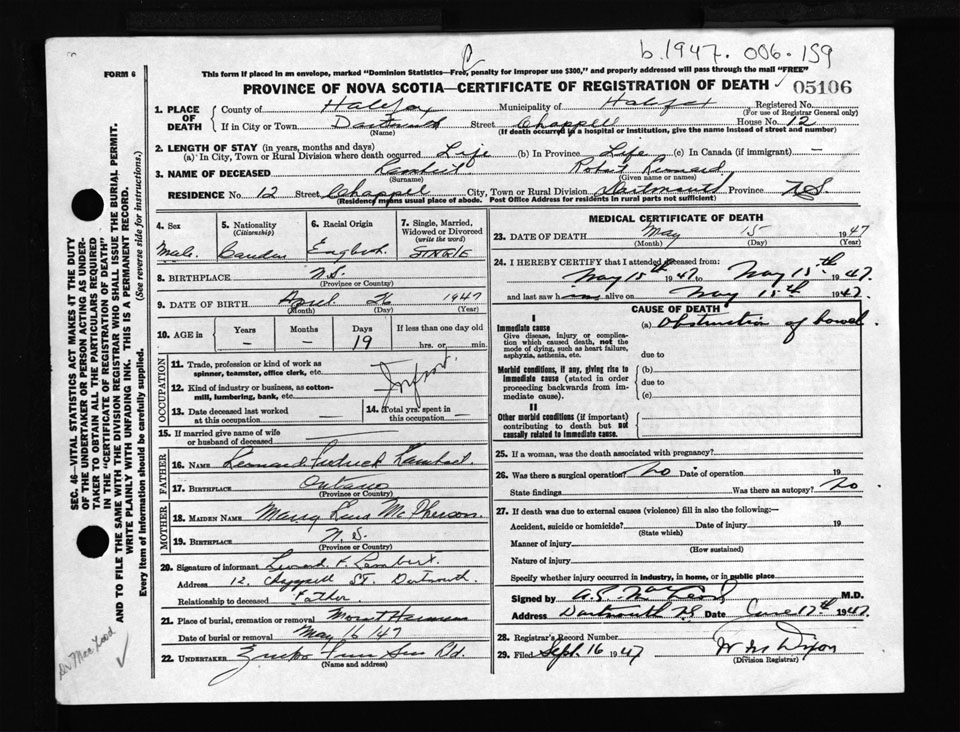 b.1947. 006-159
FORM 6
This form if placed in an envelope, marked "Dominion Statistics—Free, penalty for improper use $300," and properly addressed will pass through the mail "FREE"
PROVINCE OF NOVA SCOTIA—CERTIFICATE OF REGISTRATION OF DEATH
05106
1. PLACE OF DEATH
County of Halifax Municipality of Halifax Registered No.
(For use of Registrar General only)
If in City or Town Dartmouth Street Chappell House No. 12
(Name) (If death occurred in a hospital or institution, give the name instead of street and number)
2. LENGTH OF STAY (in years, months and days)
(a) In City, Town or Rural Division where death occurred Life (b) In Province Life (c) In Canada (if immigrant) —
3. NAME OF DECEASED Lambert Robert Leonard
(Surname) (Given name or names)
RESIDENCE No. 12 Street Chappel City, Town or Rural Division Dartmouth Province N.S.
(Residence means usual place of abode. Post Office Address for residents in rural parts not sufficient)
4. Sex
5. Nationality
(Citizenship)
6. Racial Origin
7. Single, Married, Widowed or Divorced
(write the word)
Male. English SINGLE
8. BIRTHPLACE N.S.
(Province or Country)
9. DATE OF BIRTH April 26 1947
(Month) (Day) (Year)
10. AGE in Years Months Days If less than one day old
— — 19 hrs. or min.
OCCUPATION
11. Trade, profession or kind of work as spinner, teamster, office clerk, etc.
12. Kind of industry or business, as cotton-mill, lumbering, bank, etc.
13. Date deceased last worked at this occupation
14. Total yrs. spent in this occupation
15. If married give name of wife or husband of deceased
FATHER
16. NAME Leonard Lambert.
17. BIRTHPLACE Ontario
(Province or Country)
MOTHER
18. MAIDEN NAME Mary McPherson.
19. BIRTHPLACE N.S.
(Province or Country)
20. Signature of informant Leonard F. Lambert.
Address 12, Chappell ST. Dartmouth.
Relationship to deceased Father.
21. Place of burial, cremation or removal Mount Hermon
Date of burial or removal May 16 / 47
22. UNDERTAKER Sons Ltd.
(Name and address)
MEDICAL CERTIFICATE OF DEATH
23. DATE OF DEATH May 15 1947
(Month) (Day) (Year)
24. I HEREBY CERTIFY that I attended deceased from:
May 15th 1947 to May 15th 1947.
and last saw him alive on May 15th 1947.
CAUSE OF DEATH
I
Immediate cause (a) Obstruction of bowel.
Give disease, injury or complication which caused death, not the mode of dying, such as heart failure, asphyxia, asthenia, etc.
due to
Morbid conditions, if any, giving rise to immediate cause (stated in order proceeding backwards from immediate cause).
(b)
due to
(c)
II
Other morbid conditions (if important) contributing to death but not causally related to immediate cause.
25. If a woman, was the death associated with pregnancy?
26. Was there a surgical operation? No Date of operation 19
State findings Was there an autopsy? No
27. If death was due to external causes (violence) fill in also the following:—
Accident, suicide or homicide? Date of injury 19
(State which)
Manner of injury
(How sustained)
Nature of injury
Specify whether injury occurred in industry, in home, or in public place
Signed by M.D.
Address Dartmouth N.S Date June 17th 1947.
28. Registrar's Record Number
29. Filed Sept. 16 1947 W M Dixon
(Division Registrar)
SEC. 46—VITAL STATISTICS ACT MAKES IT THE DUTY
OF THE UNDERTAKER OR PERSON ACTING AS UNDERTAKER TO OBTAIN ALL THE PARTICULARS REQUIRED
IN THE "CERTIFICATE OF REGISTRATION OF DEATH"
AND TO FILE THE SAME WITH THE DIVISION REGISTRAR WHO SHALL ISSUE THE BURIAL PERMIT.
WRITE PLAINLY WITH UNFADING INK. THIS IS A PERMANENT RECORD.
Every item of information should be carefully supplied. (See reverse side for instructions.)
Dr MacLeod